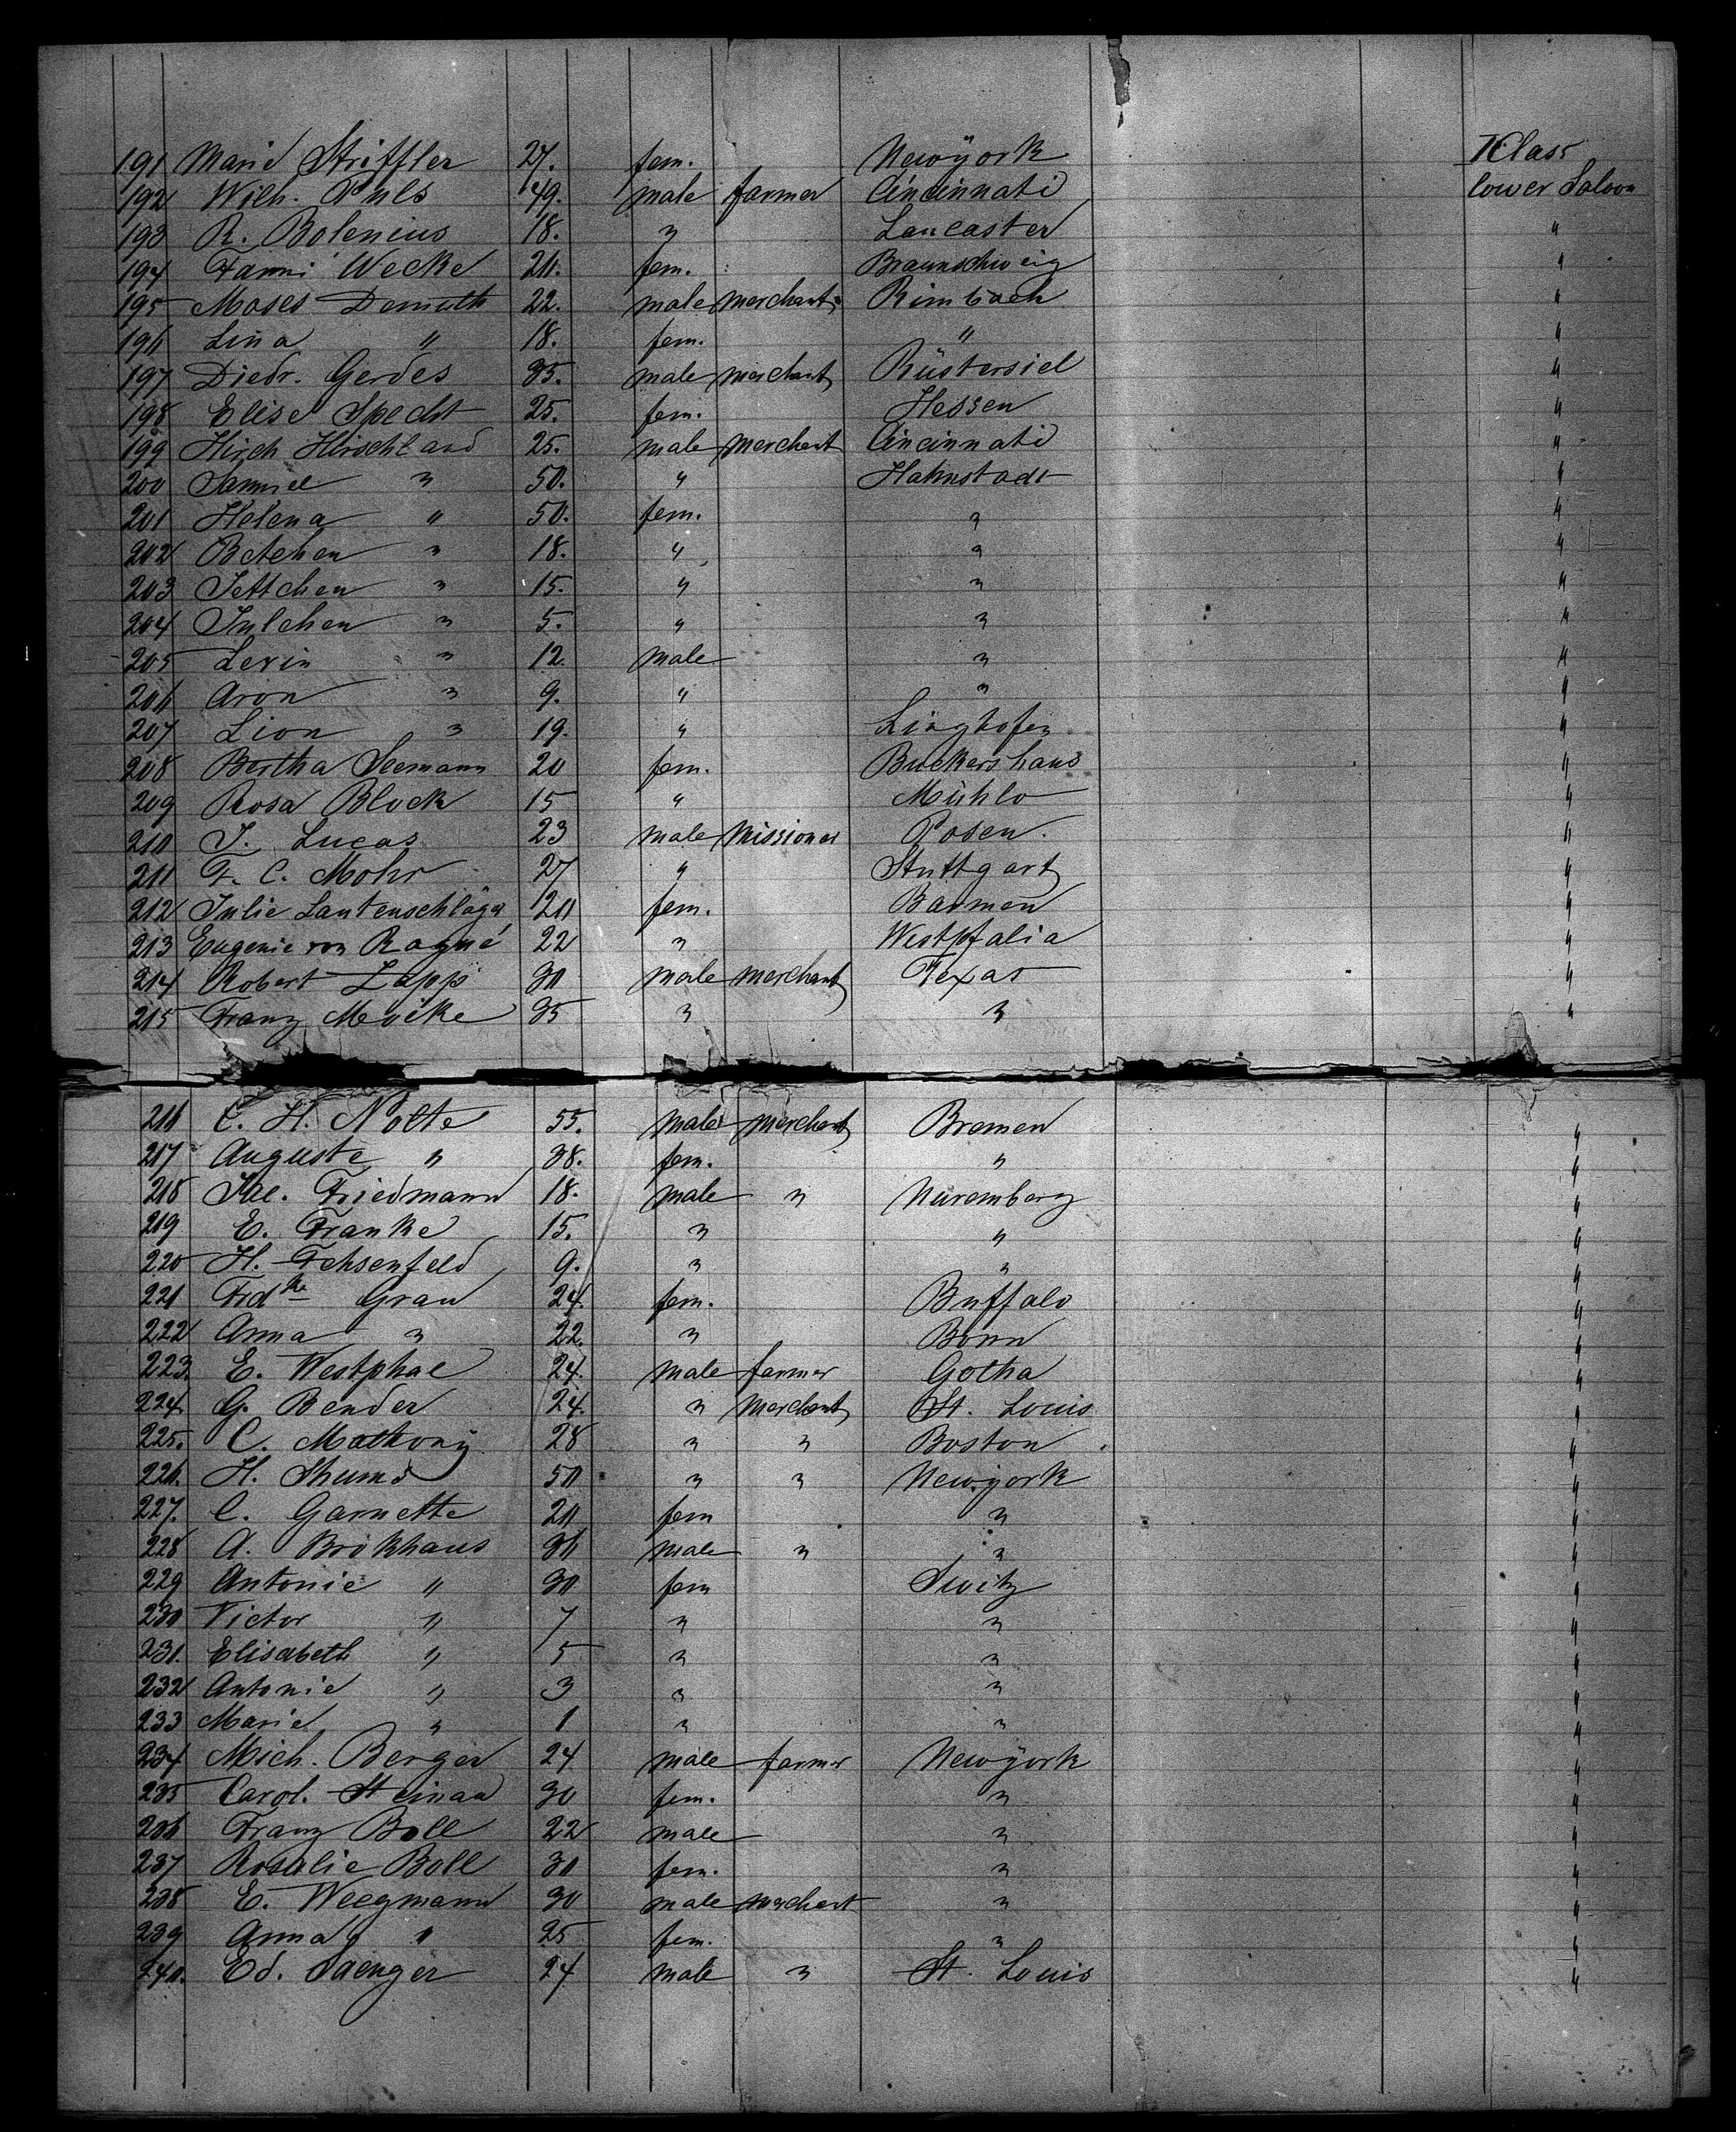 191 Marie Striffler 27. fem. Newyork I Class
192 Wilh. Puls 49. male farmer Cincinnati lower Saloon
193 R. Bolenius 18. " Lancaster "
194 Fanni Wecke 20. fem. Braunschweig "
195 Moses Demuth 22. male merchant Rimbach "
196 Lina " 18. fem. " "
197 Diedr. Gerdes 35. male merchant Rüstersiel "
198 Elise Specht 25. fem. Hessen "
199 Hirch Hirschland 25. male merchant Cincinnati "
200 Samuel " 50. " Hahnstadt "
201 Helena " 50. fem. " "
202 Betchen " 18. " " "
203 Jettchen " 15. " " "
204 Julchen " 5. " " "
205 Levin " 12. male " "
206 Aron " 9. " " "
207 Lion " 19. " Linghofen "
208 Bertha Seemann 20 fem. Buckershaus "
209 Rosa Block 15 " Mühlo "
210 J. Lucas 23 male Missioner Posen. "
211 F. C. Mohr 27 " Stuttgart "
212 Julie Lautenschläger 20 fem. Barmen "
213 Eugenie von Ragué 22 " Westpfalia "
214 Robert Zapp 30 male merchant Texas "
215 Franz Mocke 35 " " "
216 C. H. Nolte 55. male merchant Bremen "
217 Auguste " 38. fem. " "
218 Jul. Friedmann 18. male " Nuremberg "
219 E. Franke 15. " " "
220 H. Fehsenfeld 9. " " "
221 Frdke Grau 24. fem. Buffalo "
222 Anna " 22. " Bonn "
223. E. Westphal 24. male farmer Gotha "
224. G. Bender 24. " merchant St. Louis "
225. C. Mathony 28 " " Boston "
226. H. Thums 50 " " Newyork "
227. C. Garnette 20 fem " "
228 A. Brökhaus 36 male " " "
229 Antonie " 30 fem Switz "
230 Victor " 7 " " "
231. Elisabeth " 5 " " "
232 Antonie " 3 " " "
233 Marie " 1 " " "
234 Mich. Berger 24 male farmer Newyork "
235 Carol. Steinau 30 fem. " "
236 Franz Boll 22 male " "
237 Rosalie Boll 30 fem. " "
238 E. Weegmann 30 male merchant " "
239 Anna " 25 fem. " "
240. Ed. Saenger 24 male " St. Louis "